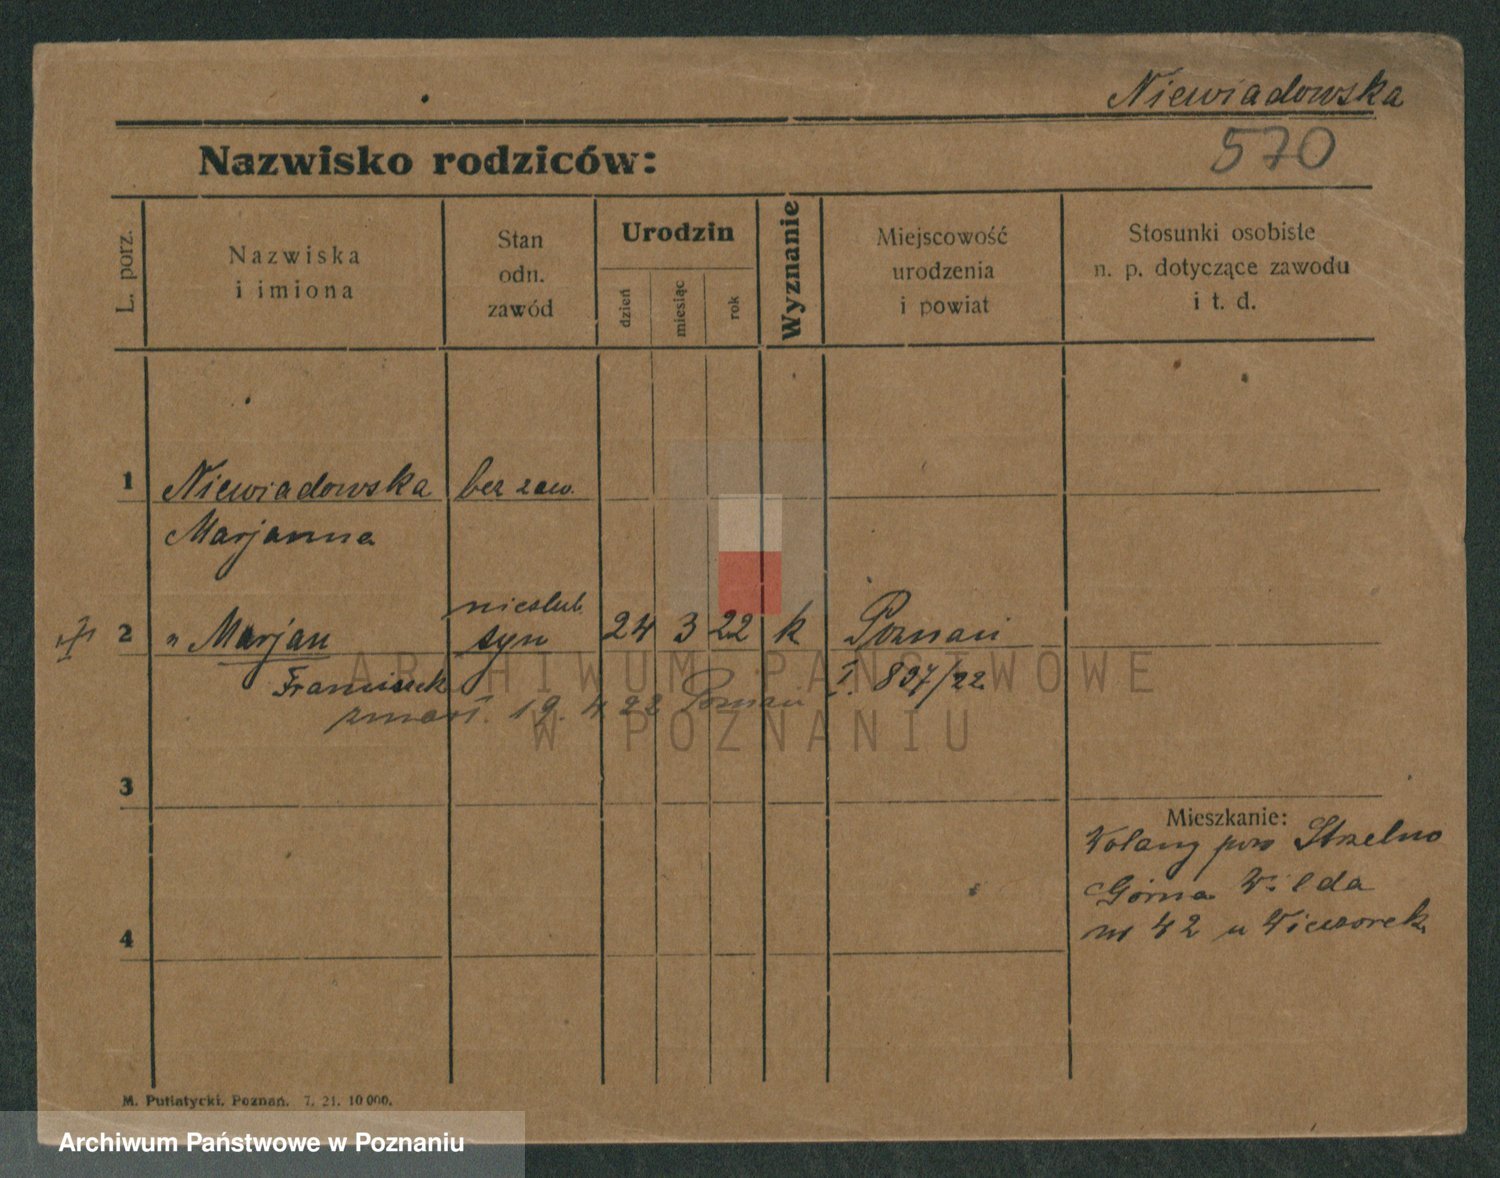 Niewiadowska
570
Nazwisko rodziców:
L. porz.
Nazwiska
i imiona
Stan
odn.
zawód
Urodzin
dzień
miesiąc
rok
Wyznanie
Miejscowość
urodzenia
i powiat
Stosunki osobiste
n. p. dotyczące zawodu
i t. d.
1 Niewiadowska bez zaw.
Marjanna
nieslub.
2 " Marjan syn 24 3 22 k Poznań
Franciszek I. 837/22
zmarł. 19. 4 22 Poznań
ARCHIWUM PAŃSTWOWE
W POZNANIU
3
Mieszkanie:
Wolany pow Strzelno
Górna Wilda
nr 42 u Wieczorek
4
M. Putiatycki, Poznań. 7. 21. 10 000.
Archiwum Państwowe w Poznaniu